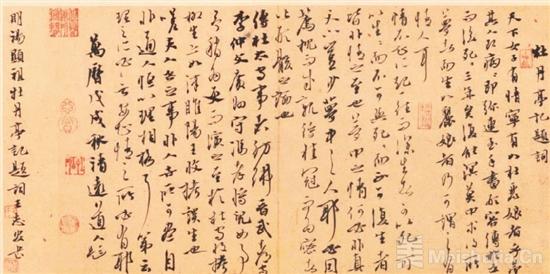 牡丹亭記題詞
天下女子有情寧有如杜麗娘者乎夢
其人即病病即彌連至手畫形容傳於世
而後死死三年矣復能溟莫中求得其所
夢者而生如麗娘者乃可謂之有
情人耳
情不知所起一往而深生者可以死死可
以生生而不可與死死而不可復生者
皆非情之至也夢中之情何必非真
天下豈少夢中之人耶必因
薦枕而成親待掛冠而為密者
皆形骸之論也
傳杜太守事者彷彿晉武都守
李仲文廣州守馮孝將兒女事
予稍為更而演之至於杜守收拷
柳生亦如漢睢陽王收拷談生也
嗟夫人世之事非人世所可盡自
非通人恒以理相格耳第云
理之所必無安知情之所必有耶
萬曆戊戌秋清遠道人題
明湯顯祖牡丹亭記題詞 王志安書
Meishujia.Cn